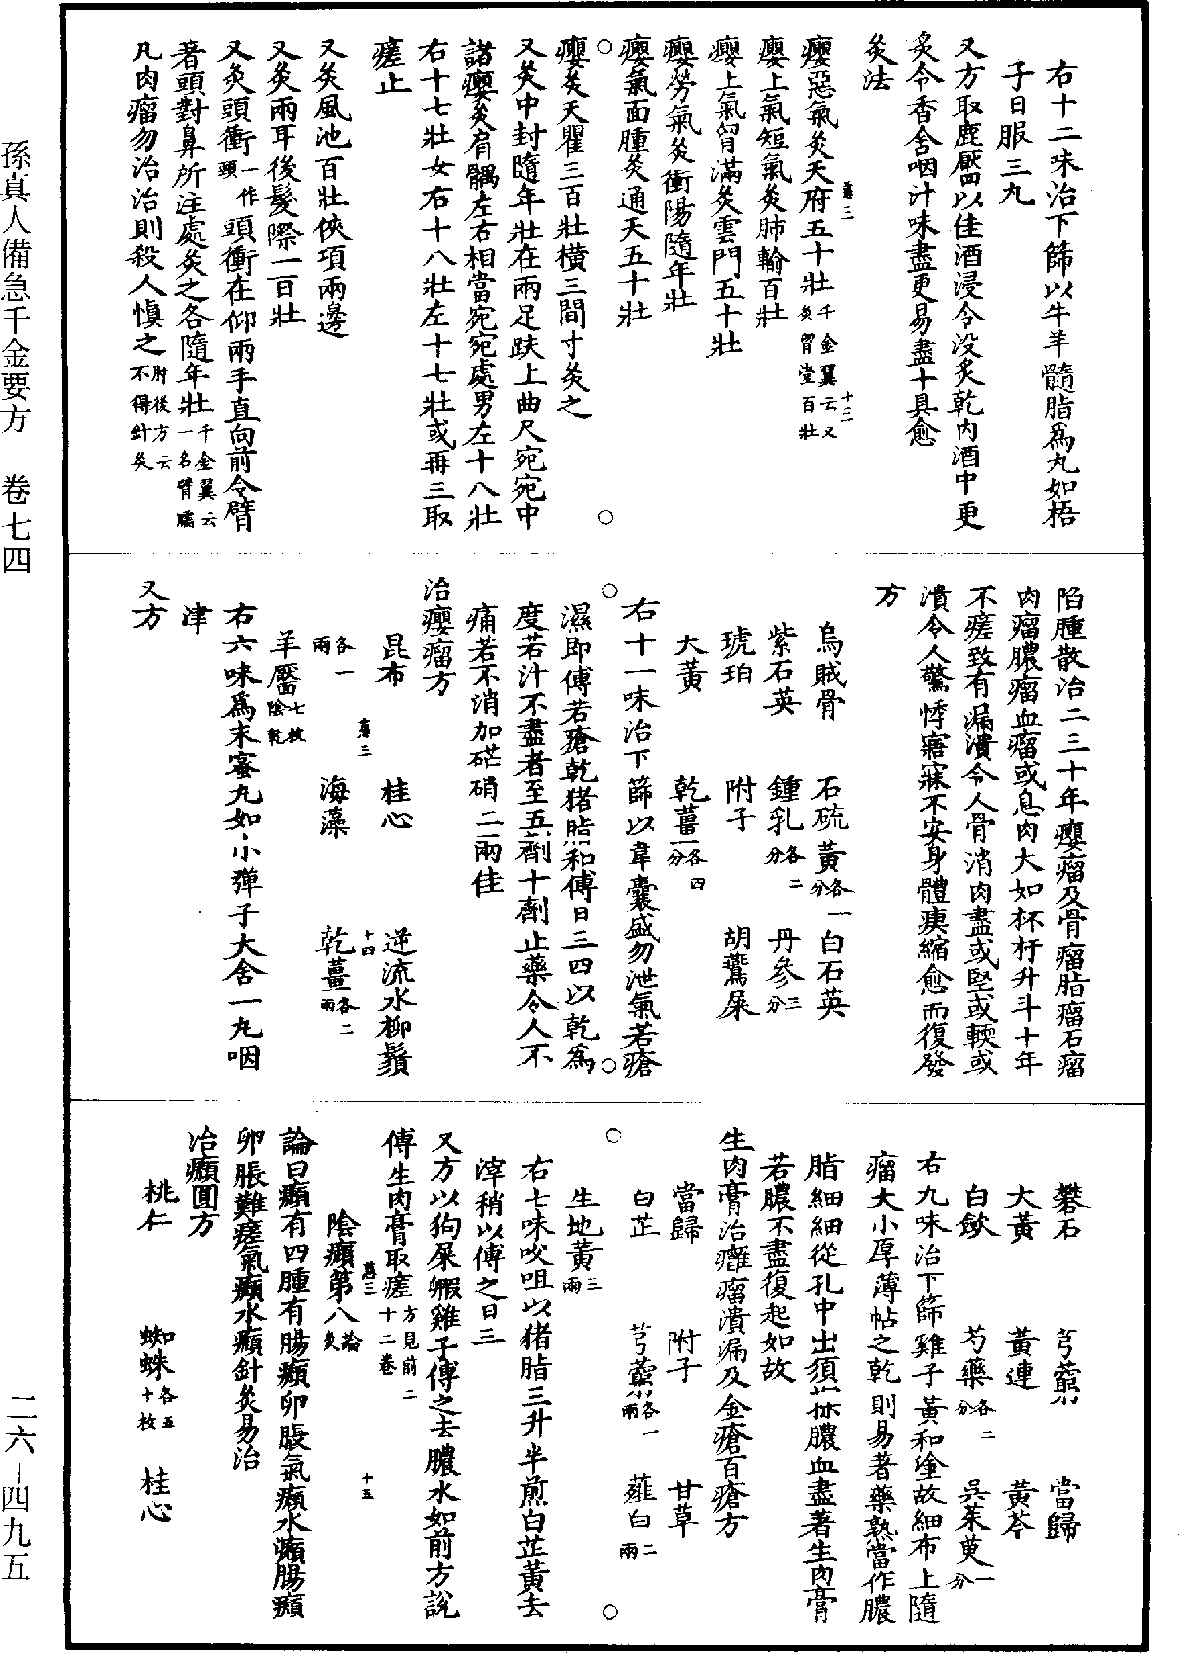 孫真人備急千金要方　卷七四
二六-四九五
右十二味治下篩以牛羊髓脂爲丸如梧
子日服三丸
又方取鹿靨以佳酒浸令没炙乾内酒中更
炙令香含咽汁味盡更易盡十具愈
灸法
癭惡氣灸天府五十壯千金翼云又灸胷堂百壯
癭上氣短氣灸肺輸百壯
癭上氣胷滿灸雲門五十壯
癭勞氣灸衝陽隨年壯
癭氣面腫灸通天五十壯
癭灸天瞿三百壯横三間寸灸之
又灸中封隨年壯在兩足趺上曲尺宛宛中
諸癭灸肩髃左右相當宛宛處男左十八壯
右十七壯女右十八壯左十七壯或再三取
瘥止
又灸風池百壯俠項兩邊
又灸兩耳後髮際一百壯
又灸頭衝一作頸頭衝在仰兩手直向前令臂
著頭對鼻所注處灸之各隨年壯千金翼云一名臂臑
凡肉瘤勿治治則殺人慎之肘後方云不得針灸
陷腫散治二三十年癭瘤及骨瘤脂瘤石瘤
肉瘤膿瘤血瘤或息肉大如杯杅升斗十年
不瘥致有漏潰令人骨消肉盡或堅或輭或
潰令人驚悸寤寐不安身體瘈縮愈而復發
方
烏賊骨　石硫黄各一分　白石英
紫石英　鍾乳各二分　丹參三分
琥珀　附子　胡鷰屎
大黄　乾薑各四分
右十一味治下篩以韋囊盛勿泄氣若瘡
濕即傅若瘡乾猪脂和傅日三四以乾爲
度若汁不盡者至五劑十劑止藥令人不
痛若不消加芒硝二兩佳
治癭瘤方
昆布　桂心　逆流水柳鬚
各一兩　海藻　乾薑各二兩
羊靨七枚陰乾
右六味爲末蜜丸如小彈子大含一丸咽
津
又方
礬石　芎藭　當歸
大黄　黄連　黄芩
白斂　芍藥各二分　吳茱萸一分
右九味治下篩雞子黄和塗故細布上隨
瘤大小厚薄帖之乾則易著藥熟當作膿
脂細細從孔中出須探膿血盡著生肉膏
若膿不盡復起如故
生肉膏治癰瘤潰漏及金瘡百瘡方
當歸　附子　甘草
白芷　芎藭各一兩　薤白二兩
生地黄三兩
右七味㕮咀以猪脂三升半煎白芷黄去
滓稍以傅之日三
又方以狗屎毈雞子傅之去膿水如前方説
傅生肉膏取瘥方見前二十二卷
陰㿗第八論灸
論曰㿗有四腫有腸㿗卵脹氣㿗水㿗腸㿗
卵脹難瘥氣㿗水㿗針灸易治
治㿗圓方
桃仁　蜘蛛各五十枚　桂心